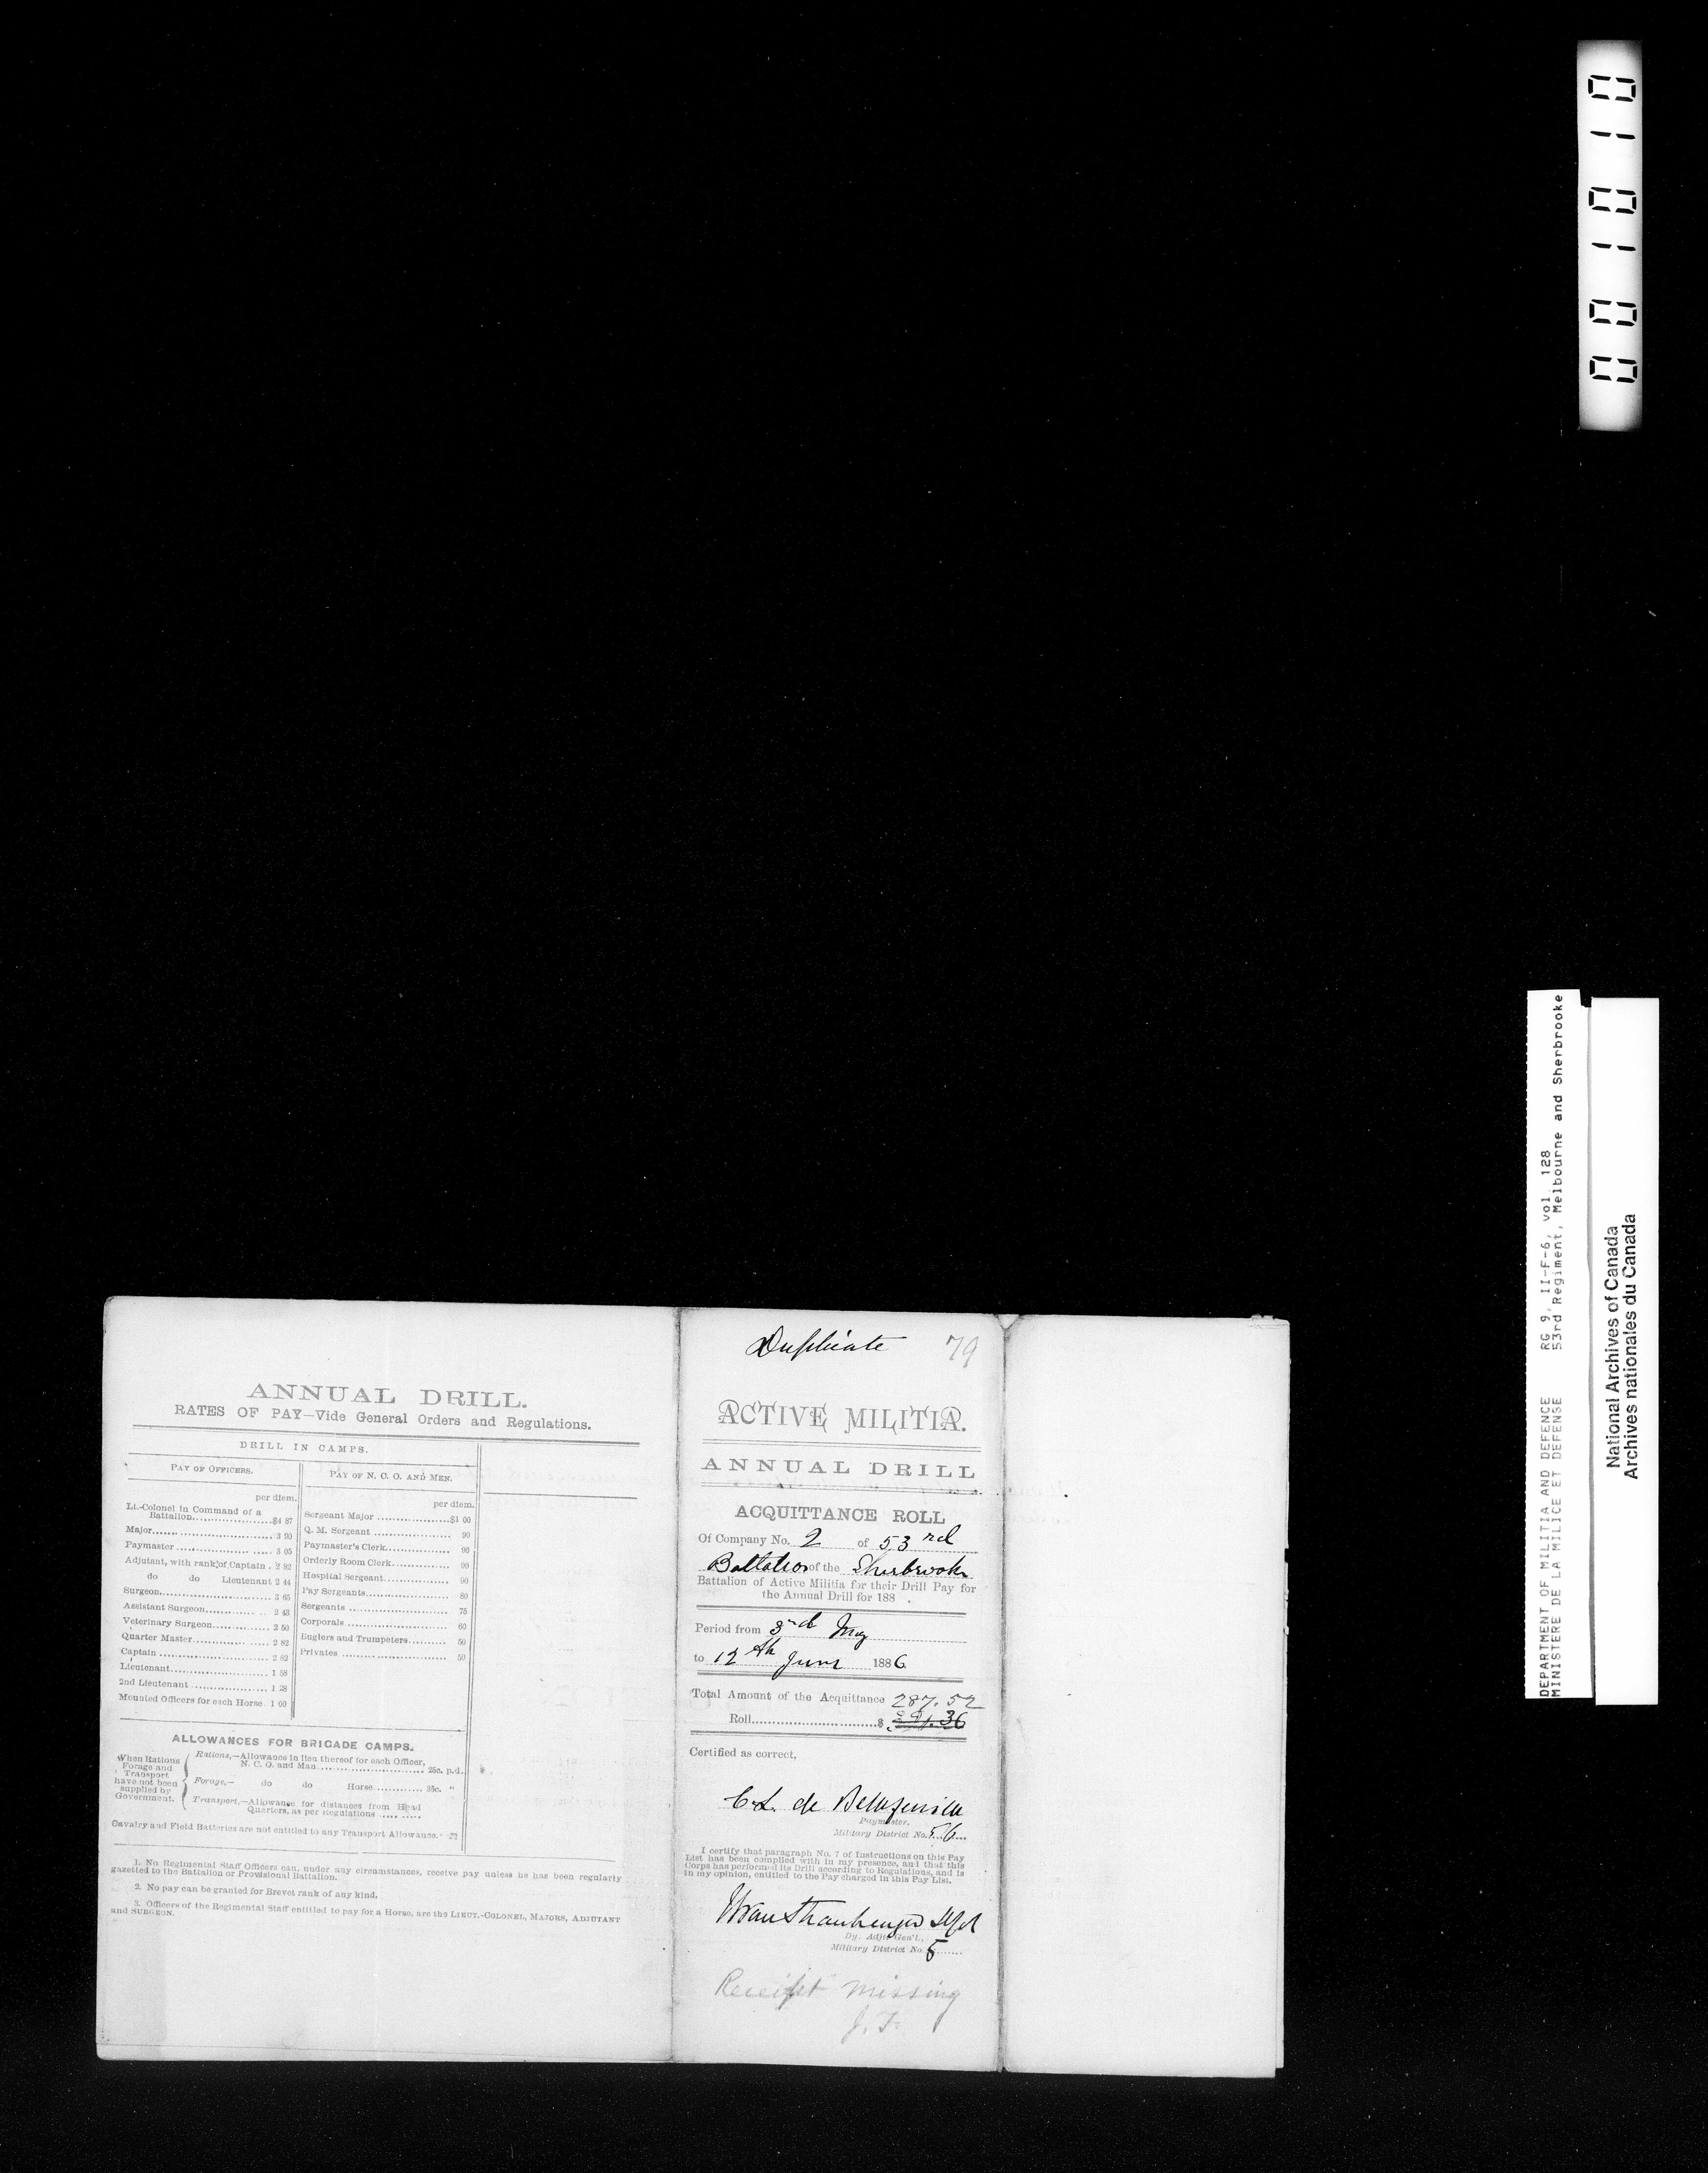 ANNUAL DRILL.
RATES OF PAY—Vide General Orders and Regulations.
DRILL IN CAMPS.
PAY OF OFFICERS.
per diem.
Lt.-Colonel in Command of a
Battalion..............$4 87
Major.............................. 3 90
Paymaster ...................... 3 05
Adjutant, with rank of Captain . 2 82
do do Lieutenant 2 44
Surgeon........................... 3 65
Assistant Surgeon............. 2 43
Veterinary Surgeon............ 2 50
Quarter Master................. 2 82
Captain ........................... 2 82
Lieutenant........................ 1 58
2nd Lieutenant .................. 1 28
Mounted Officers for each Horse. 1 00
PAY OF N. C. O. AND MEN.
per diem.
Sergeant Major ..................$1 00
Q. M. Sergeant .................. 90
Paymaster's Clerk............... 90
Orderly Room Clerk............. 90
Hospital Sergeant............... 90
Pay Sergeants................... 80
Sergeants ........................ 75
Corporals ........................ 60
Buglers and Trumpeters........ 50
Privates ........................... 50
ALLOWANCES FOR BRIGADE CAMPS.
When Rations
Forage and
Transport
have not been
supplied by
Government.
Rations,—Allowance in lieu thereof for each Officer,
N. C. O. and Man ........................ 25c. p.d.
Forage,— do do Horse............ 35c. "
Transport,—Allowance for distances from Head
Quarters, as per Regulations ..... .....
Cavalry and Field Batteries are not entitled to any Transport Allowance.
1. No Regimental Staff Officers can, under any circumstances, receive pay unless he has been regularly
gazetted to the Battalion or Provisional Battalion.
2. No pay can be granted for Brevet rank of any kind.
3. Officers of the Regimental Staff entitled to pay for a Horse, are the LIEUT.-COLONEL, MAJORS, ADJUTANT
and SURGEON.
Duplicate 79
ACTIVE MILITIA.
ANNUAL DRILL
ACQUITTANCE ROLL
Of Company No. 2 of 53rd
Battalion of the Sherbrooke
Battalion of Active Militia for their Drill Pay for
the Annual Drill for 188 .
Period from 3rd May
to 12th June 1886
Total Amount of the Acquittance 287.52
Roll..............................$
Certified as correct,
C. L. de
Paymaster.
Military District No. 5.6
I certify that paragraph No. 7 of Instructions on this Pay
List has been complied with in my presence, and that this
Corps has performed its Drill according to Regulations, and is
in my opinion, entitled to the Pay charged in this Pay List.
Dy. Adjt. Gen'l.,
Military District No. 5
Receipt missing
J. F.
001010
DEPARTMENT OF MILITIA AND DEFENCE RG 9, II-F-6, vol. 128
MINISTERE DE LA MILICE ET DEFENSE 53rd Regiment, Melbourne and Sherbrooke
National Archives of Canada
Archives nationales du Canada